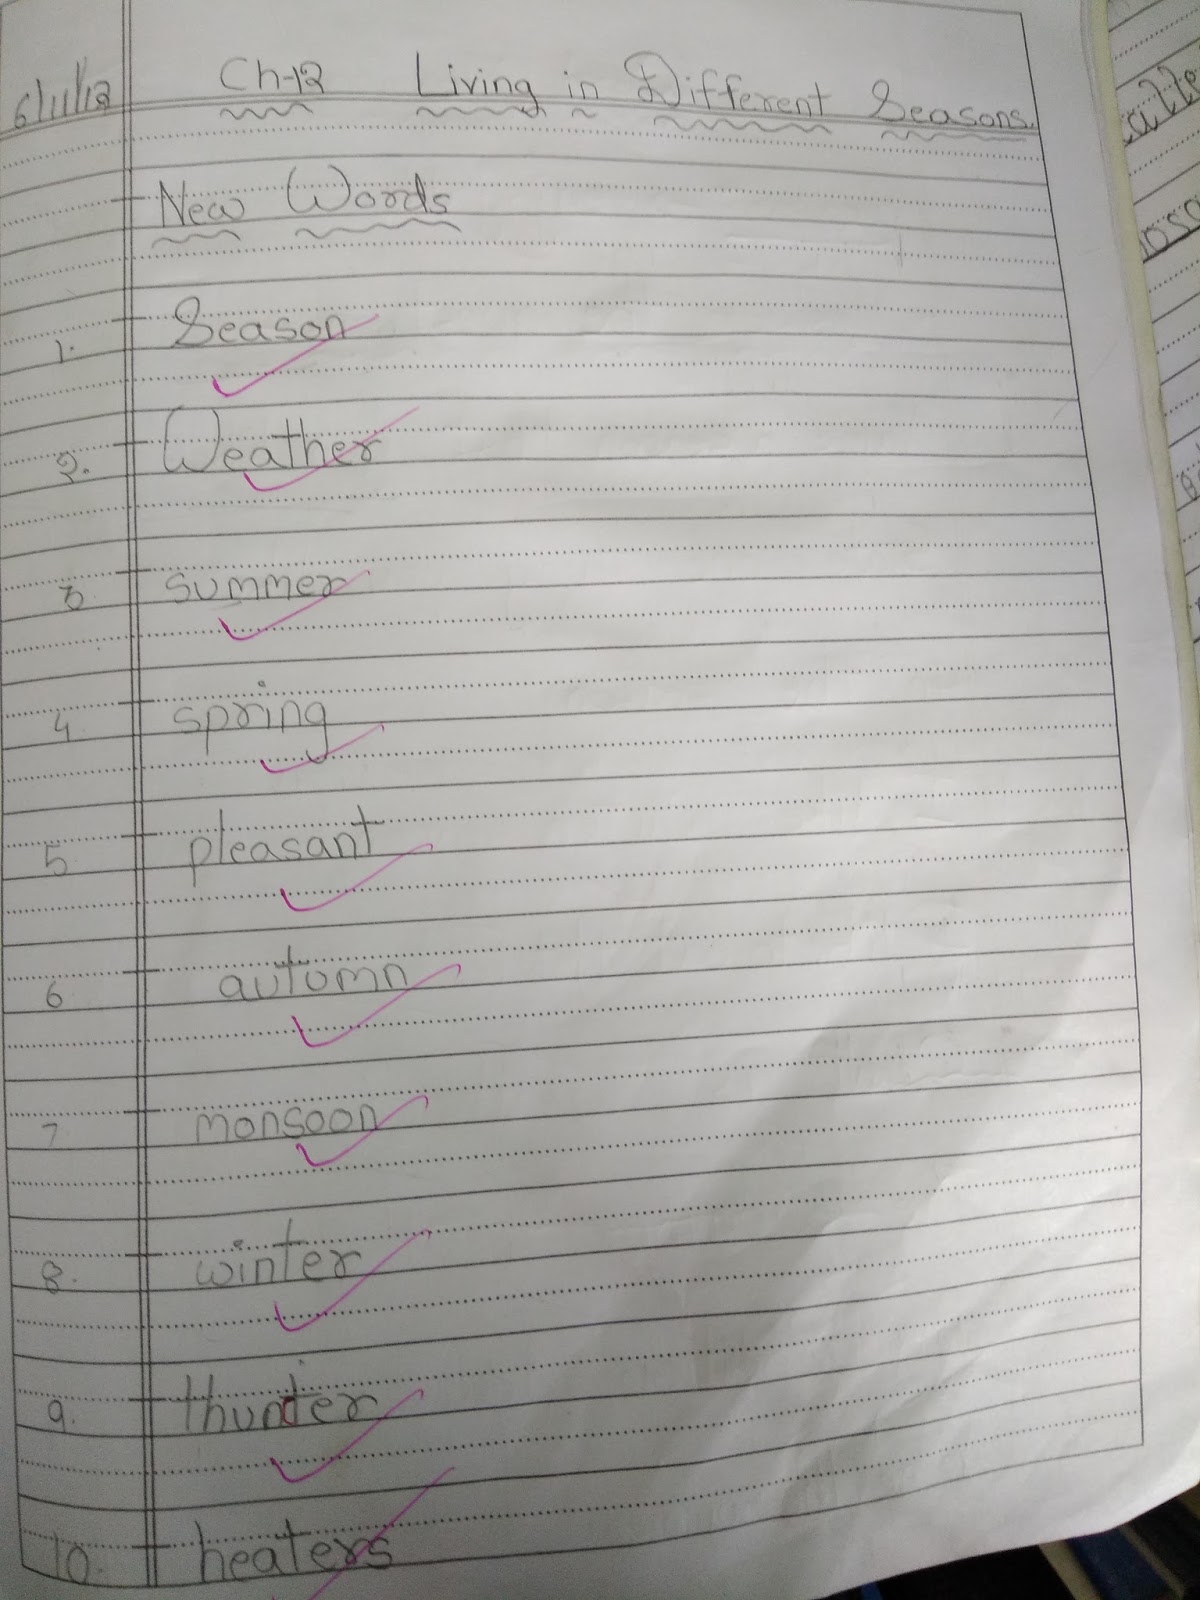 6/11/18 Ch-12 Living in Different Seasons.
New Words
1. Season
2. Weather
3 summer
4 spring
5 pleasant
6 autumn
7 monsoon
8. winter
9. thunder
10. heaters